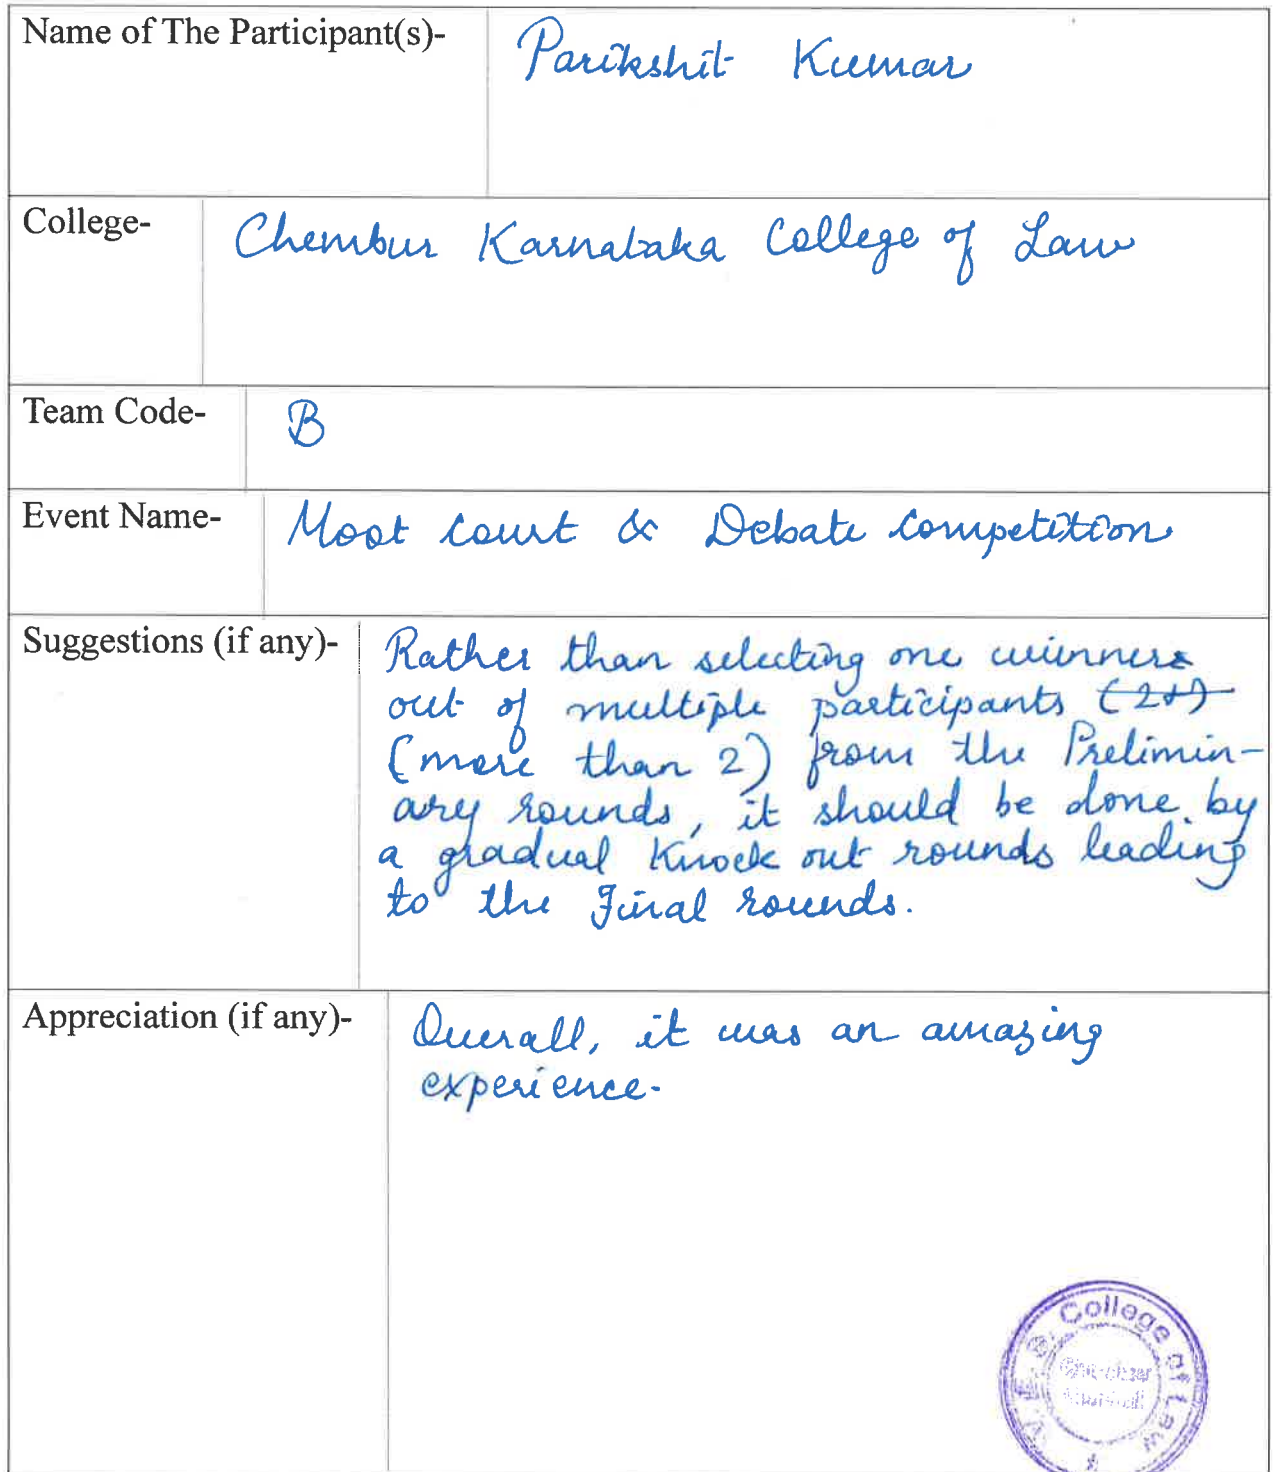 Name of The Participant(s)- Parikshit Kumar
College- Chembur Karnataka College of Law
Team Code- B
Event Name- Moot Court & Debate Competition
Suggestions (if any)- Rather than selecting one winner
out of multiple participants (2+)
(more than 2) from the Prelimin-
ary rounds, it should be done by
a gradual Knock out rounds leading
to the Final rounds.
Appreciation (if any)- Overall, it was an amazing
experience.
V. E. S. College of Law